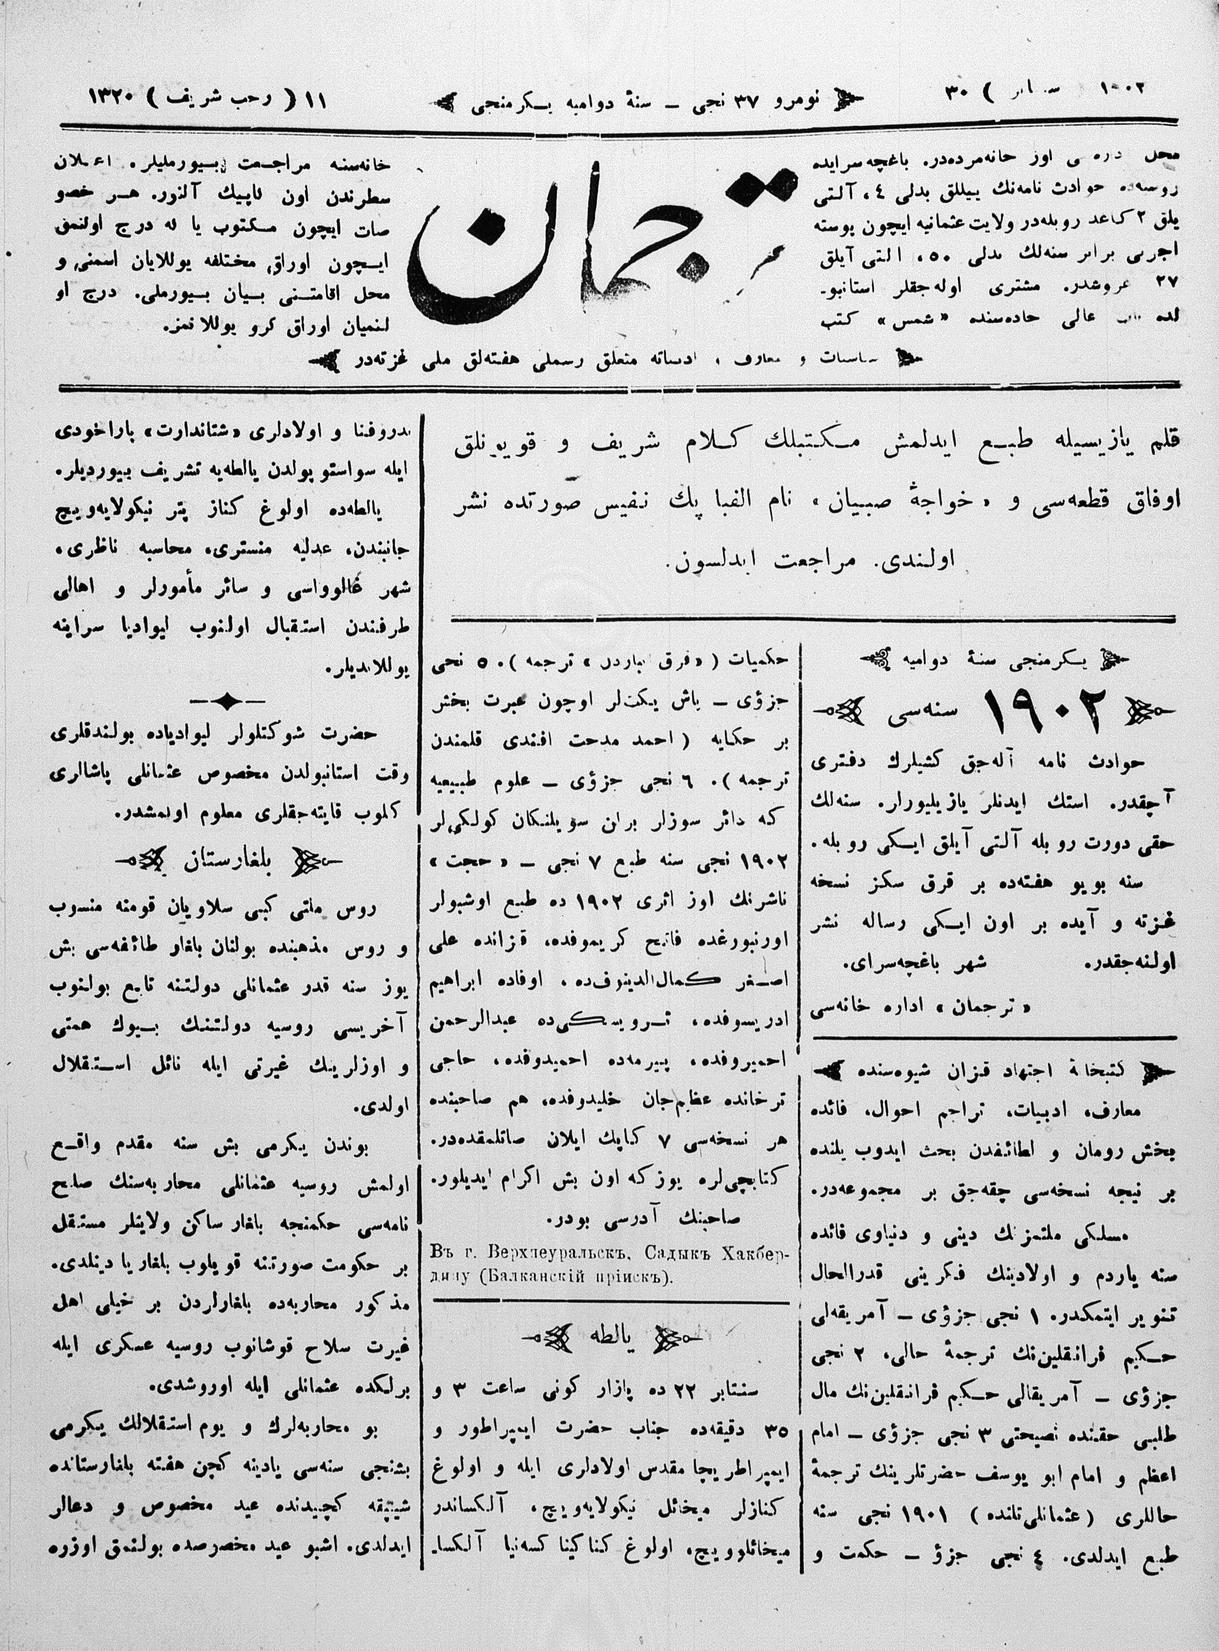 ٣٠
نومرو ٣٧ نجی ـ سنۀ دوامیه یـکرمنجی
١١ ( رجب شریف ) ١٣٢٠
اوز خانه‌مرده‌در. باغچه سرایده
حوادث نامه‌نك ییللق بدلی ٤، آلتی
یلق ٢ کاغد روبله‌در ولایت عثمانیه ایچون پوسته
اجرتی برابر سنه‌لك بدلی ٥٠، التی آیلق
٢٧ غروشدر. مشتری اوله‌جقلر استانبو۔
عالی جاده‌سنده «شمس» کتب
خانه‌سنه مراجـعت بیـورملیلر. اعـلان
سطرندن اون کاپیك آلنور. هـر خصو
صات ایچون مـکتوب یا له درج اولنمق
ایـچون اوراق مختلفه یوللایان اسمنی و
محل اقامتـنی بیـان بیـورملی. درج او
لنمیان اوراق کرو یوللانمز.
ترجمان
و معارف ، ادبیاته متعلق رسملی هفته‌لق ملی غزته‌در
قلم یازیسیله طبـع ایدلمش مـکتبلك کـلام شریف و قویونلق
اوفاق قطعه‌سی و «خواجۀ صبیان» نام الفبا پك نفیس صورتده نشر
اولندی. مراجعت ایدلسون.
یـکرمنجی سنۀ دوامیه
١٩٠٢ سنه‌سی
حوادث نامه آله‌جق کشیلرك دفتری
آچقدر. استك ایدنلر یازیلیورلر. سنه‌لك
حقی دورت روبله آلتی آیلق ایـکی روبله.
سنه بویو هفته‌ده بر قرق سکز نسخه
غـزته و آیده بر اون ایـکی رساله نشر
اولنه‌جقدر. شهر باغچه‌سرای.
«ترجمان» اداره خانه‌سی
کتبخانۀ اجتهاد قـزان شیوه‌سنده
معارف، ادبیات، تراجم احوال، فائده
بخش رومان و لطائفدن بحث ایدوب یلنده
بر نیجه نسخه‌سی چقه‌جق بر مجموعه‌در.
مسلـکی ملتمزنك دینی و دنیاوی فائده
سنه یاردم و اولادینك فـکرینی قدرالحال
تنویر ایتمکدر. ١ نجی جزؤی ـ آمریقه‌لی
حـکیم فرانقلین‌نك ترجمۀ حالی، ٢ نجی
جزؤی ـ آمریقالی حـکیم فرانقلین‌نك مال
طلبی حقنده نصیحتی ٣ نجی جزؤی ـ امام
اعظم و امام ابو یوسف حضرتلرینك ترجمۀ
حاللری (عثمانلی‌تلنده) ١٩٠١ نجی سنه
طبع ایدلدی. ٤ نجی جزؤ ـ حکمت و
حکمیات ( ترجمه ). ٥ نجی
جزؤی ـ یاش یکت‌لر اوچون عبرت بخش
بر حکایه (احمد مدحت افندی قلمندن
ترجمه). ٦ نجی جزؤی ـ علوم طبیعیه
که دائر سوزلر برلن سویلنکان کولکی‌لر
١٩٠٢ نجی سنه طبع ٧ نجی ـ «حجت»
ناشرنك اوز اثری ١٩٠٢ ده طبع اوشبولر
اورنبورغده فاتح کریموفده، قزانده علی
اصـغر کمال‌الدینوف‌ده، اوفاده ابراهیم
ادریسوفده، ترویسکی‌ده عبدالرحمن
احمیروفده، پیرمه‌ده احمیدوفده، حاجی
ترخانده عظیم‌جان خلیدوفده، هم صاحبنده
هر نسخه‌سی ٧ کاپك ایلان صاتلمقده‌در.
کتابچی‌لره یوزکه اون بش اکرام ایدیلور.
صاحبنك آدرسی بودر.
Въ г. Верхнеуральскъ, Садыкъ Хакбер-
дину (Балканскій пріискъ).
یالطه
سنتابر ٢٢ ده پازار کونی ساعت ٣ و
٣٥ دقیقه‌ده جناب حضرت ایمپراطور و
ایمپراطریچا مقدس اولادلری ایله و اولوغ
کنازلر میخائل نیکولایه‌ویچ، آلکساندر
میخائلوویچ، اولوغ کناکینا کسه‌نیا آلکسا۔
ندروفنا و اولادلری «شتاندارت» پاراخودی
ایله سواستوپولدن یالطه‌یه تشریف بیوردیلر.
یالطه‌ده اولوغ کناز پتر نیکولایه‌ویچ
جانبندن، عدلیه منستری، محاسبه ناظری،
شهر غالوواسی و سائر مأمورلر و اهالی
طرفندن استقبال اولنوب لیوادیا سراینه
یوللاندیلر.
حضرت شوکتلولر لیوادیاده بولندقلری
وقت استانبولدن مخصوص عثمانلی پاشالری
کلوب قایته‌جقلری معلوم اولمشدر.
بلغارستان
روس ملتی کبی سلاویان قومنه منسوب
و روس مذهبنده بولنان بلغار طائفه‌سی بش
یوز سنه قدر عثمانلی دولتنه تابع بولنوب
آخریسی روسیه دولتنك بیوك همتی
و اوزلرینك غیرتی ایله نائل استقلال
اولدی.
بوندن یکرمی بش سنه مقدم واقـع
اولمش روسیه عثمانلی محاربه‌سنك صلح
نامه‌سی حکمنجه بلغار ساکن ولایتلر مستقل
بر حکومت صورتنه قویلوب بلغاریا دینلدی.
مذکور محاربه‌ده بلغارلردن بر خیلی اهل
غیرت سلاح قوشانوب روسیه عسکری ایله
برلکده عثمانلی ایله اوروشدی.
بو محاربه‌لرك و یوم استقلالك یکرمی
بشنجی سنه‌سی یادینه کچن هفته بلغارستانده
شیپقه کچیدنده عید مخصوص و دعالر
ایدلدی. اشبو عید مخصرصده بولنمق اوزره